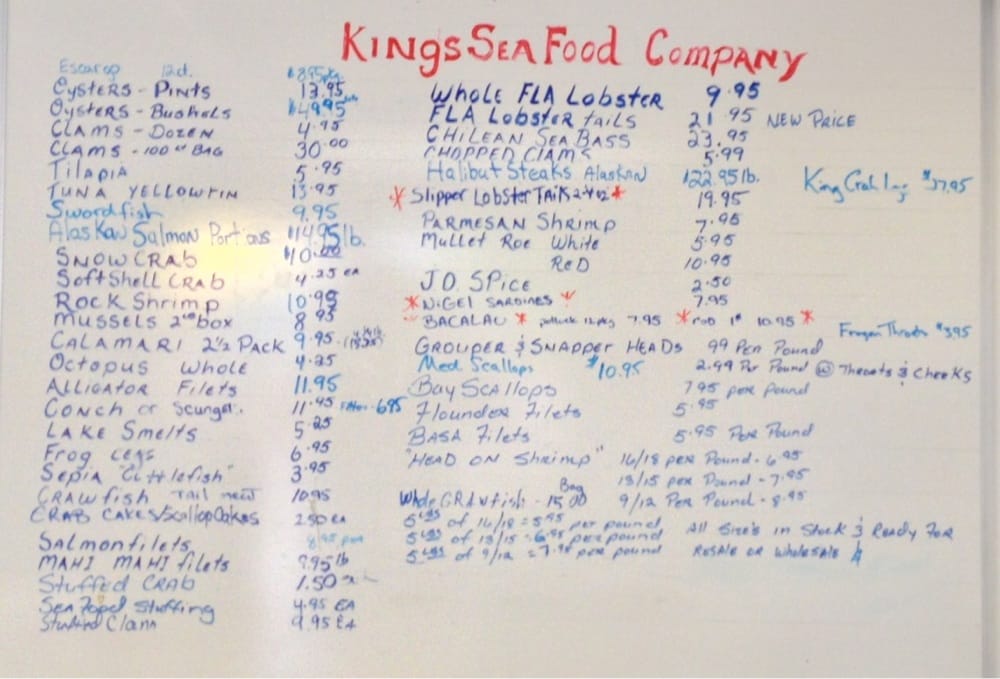 KINGS SEA FOOD COMPANY
Escargo 12ct. $8.95 pkg
OYSTERS - PINTS 13.95
OYSTERS - BUSHELS $49.95
CLAMS - DOZEN 4.95
CLAMS - 100 ct BAG 30.00
TILAPIA 5.95
TUNA YELLOWFIN 13.95
Swordfish 9.95
Alaskan Salmon Portions $14.95 lb.
SNOW CRAB $10.00
SOFT SHELL CRAB 4.25 EA
ROCK SHRIMP 10.95
MUSSELS 2 LB BOX 8.95
CALAMARI 2 1/2 PACK 9.95
OCTOPUS WHOLE 4.25
ALLIGATOR FILETS 11.95
CONCH or Scungi. 11.95 6.95
LAKE SMELTS 5.25
FROG LEGS 6.95
SEPIA "Cuttlefish" 3.95
CRAWFISH TAIL MEAT 10.95
CRAB CAKES/Scallop Cakes 2.50 EA
SALMON filets 8.95
MAHI MAHI filets 7.95 lb
Stuffed CRAB 1.50
SEA Food Stuffing 4.95 EA
Stuffed Clam 9.95 EA
WHOLE FLA LOBSTER 9.95
FLA LOBSTER tails 21.95 NEW PRICE
CHILEAN SEA BASS 23.95
CHOPPED CLAMS 5.99
Halibut Steaks Alaskan $22.95 lb.
King Crab Legs $37.95
* Slipper LOBSTER TAIL 2-4 oz * 19.95
PARMESAN SHRIMP 7.95
MULLET ROE WHITE 5.95
RED 10.95
J.O. SPICE 2.50
* NIGEL SARDINES * 7.95
BACALAU * pollock 12 pkg 7.95 * COD 1# 10.95 *
Frozen Throats $3.95
GROUPER & SNAPPER HEADS .99 PER POUND
Med Scallops $10.95 2.99 Per Pound W Throats & Cheeks
BAY SCALLOPS 7.95 per pound
Flounder Filets 5.95
BASA Filets 5.95 PER POUND
"HEAD ON SHRIMP" 16/18 per Pound - 6.95
13/15 per Pound - 7.95
Whole CRAWfish - Bag 15.00 9/12 Per Pound - 8.95
5 LBS of 16/18 = 5.95 per pound
5 LBS of 13/15 = 6.95 per pound
5 LBS of 9/12 = 7.95 per pound
All Size's in Stock & Ready FOR
RESALE OR WHOLESALE